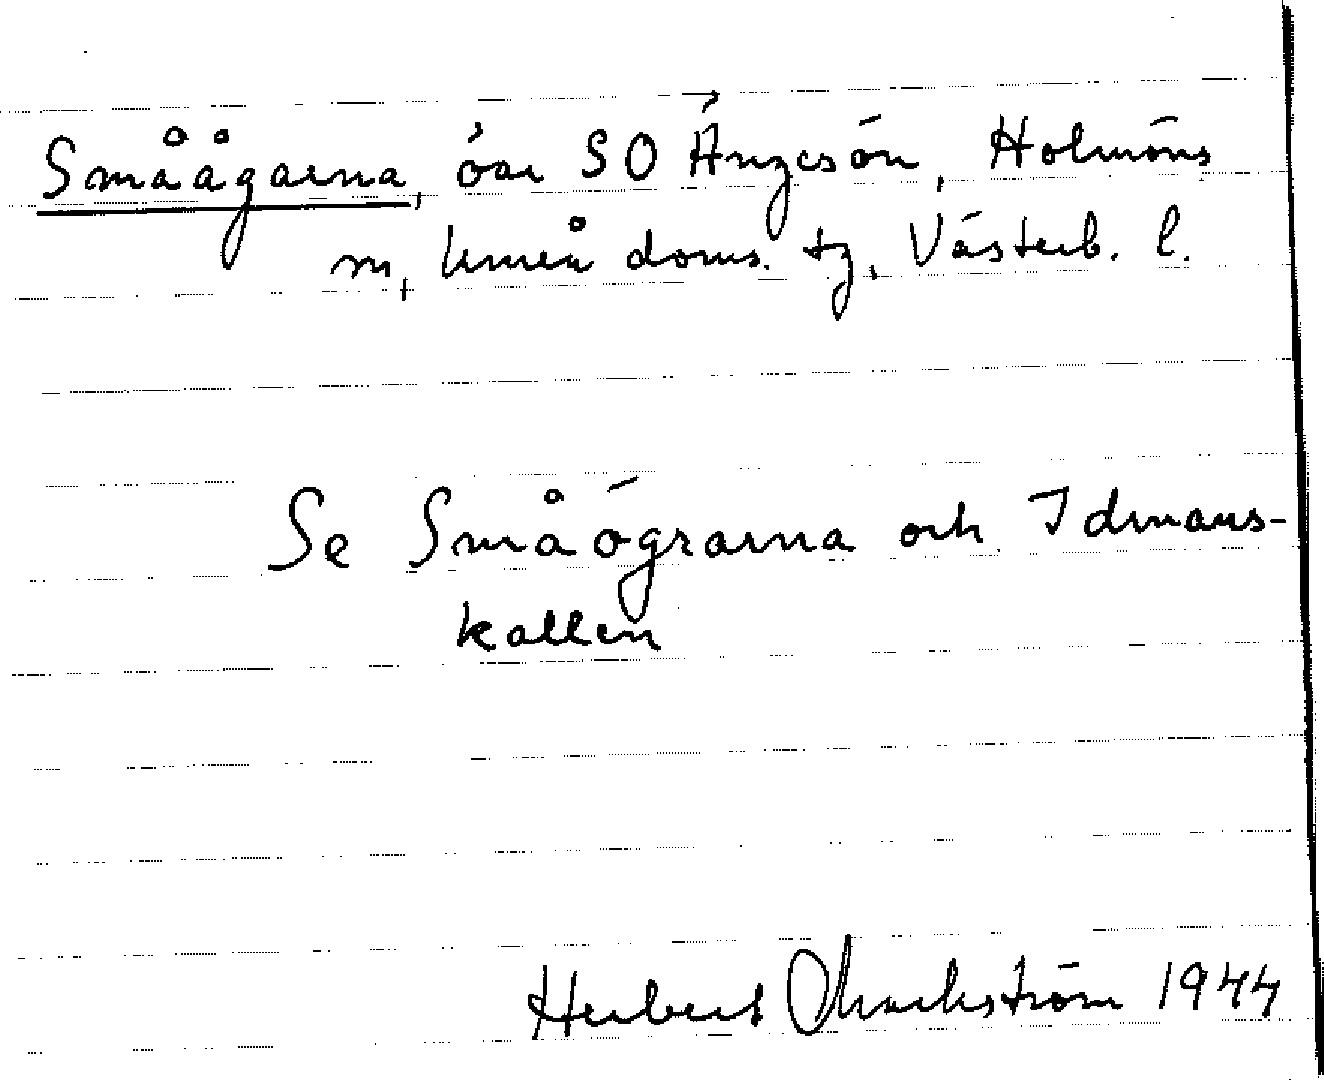 Småågarna, öar SO Ängesön, Holmöns
m, Umeå doms. tg, Västerb. l.
Se Småögrarna och Idmans-
kallen
Herbert Markström 1944